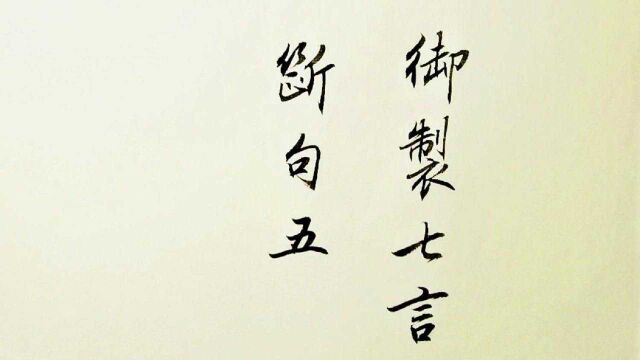 御製七言
斷句五